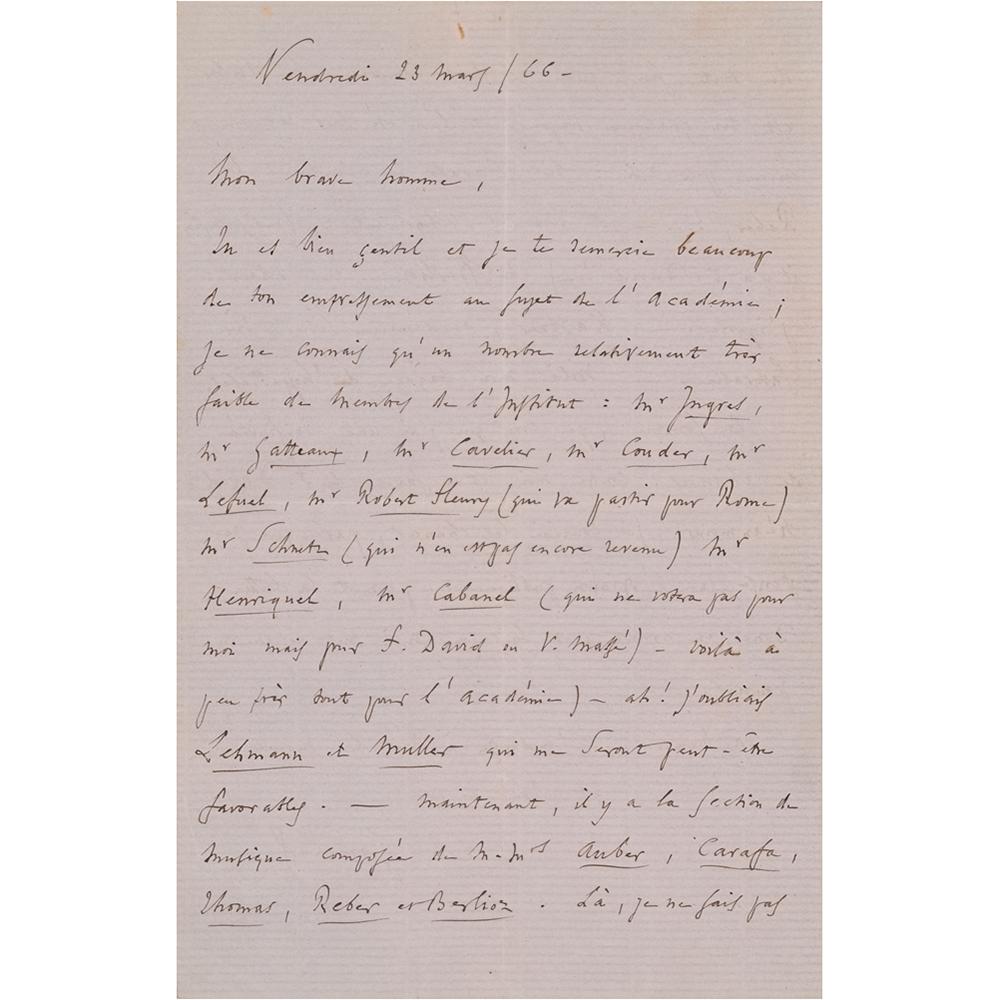 Vendredi 23 mars / 66 –
Mon brave homme,
Tu es bien gentil et je te remercie beaucoup
de ton empressement au sujet de l'Académie ;
je ne connais qu'un nombre relativement très
faible de membres de l'Institut : Mr Ingres,
Mr Gatteaux, Mr Cavelier, Mr Couder, Mr
Lefuel, Mr Robert Fleury (qui va partir pour Rome)
Mr Schnetz (qui n'en est pas encore revenu) Mr
Henriquel, Mr Cabanel (qui ne votera pas pour
moi mais pour F. David ou V. Massé) – voilà à
peu près tout pour l'Académie) – ah ! j'oubliais
Lehmann et Muller qui me seront peut-être
favorables. — Maintenant, il y a la section de
musique composée de M.Mrs Auber, Carafa,
Thomas, Reber et Berlioz. Là, je ne sais pas